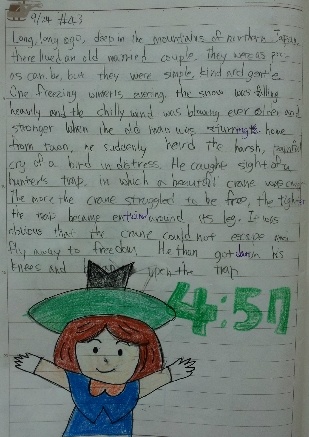 9/24 #43
Long, long ago, deep in the mountains of northern Japan
there lived an old married couple. They were as
as can be, but they were simple, kind and gentle
One freezing winter's evening, the snow was falling
heavily and the chilly wind was blowing ever and
stronger when the old man was returning home
from town, he suddenly heard the harsh,
cry of a bird in distress. He caught sight of a
hunter's trap, in which a beautiful crane was
the more the crane struggled to be free, the tighter
the trap became around its leg. It was
obvious that the crane could not escape and
fly away to freedom. He than got his
knees and open the trap
4:57